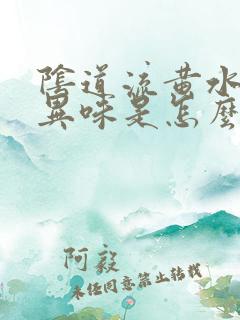 陰道流黃水
異味是怎麼
阿毅
未经同意禁止转载